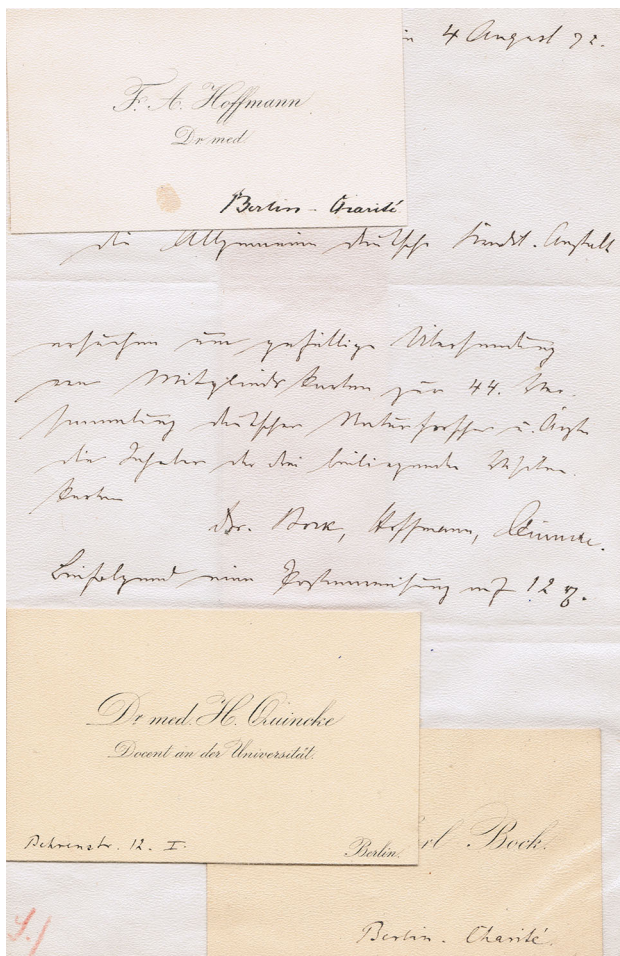 F. A. Hoffmann
Dr med.
Berlin - Charité
4 August 72.
die Allgemeine deutsche Kredit-Anstalt
ersuchen um gefällige Übersendung
von Mitgliedskarten zur 44. Ver-
sammlung deutscher Naturforscher u. Ärzte
die Inhaber der drei beiliegenden Visiten-
karten
Drr. Bock, Hoffmann, Quincke.
Beifolgend eine Postanweisung auf 12
Dr med. H. Quincke
Docent an der Universität.
Behrenstr. 12. I.
Berlin.
rl Bock.
Berlin - Charité.